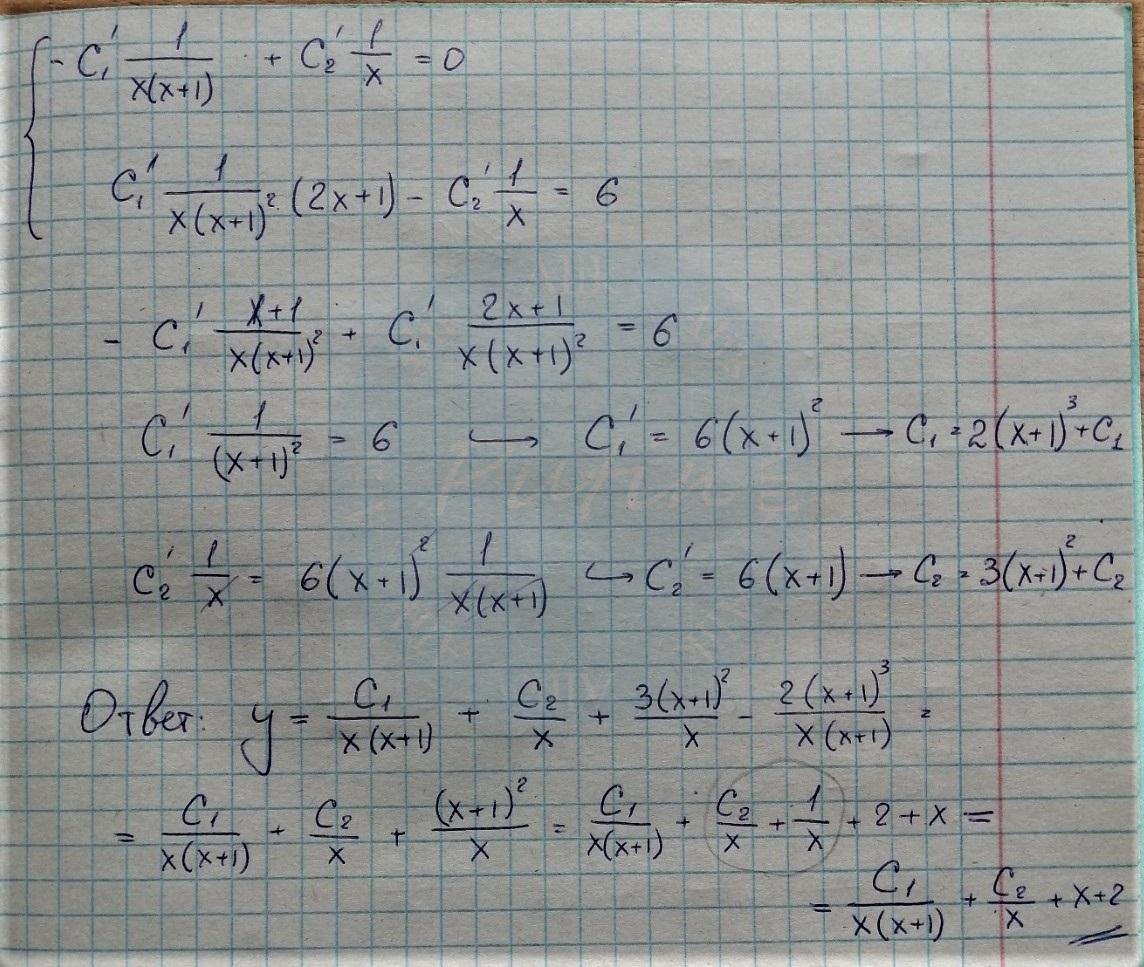 - C₁' 1/(x(x+1)) + C₂' 1/x = 0
C₁' 1/(x(x+1)²) (2x+1) - C₂' 1/x = 6
- C₁' (x+1)/(x(x+1)²) + C₁' (2x+1)/(x(x+1)²) = 6
C₁' 1/(x+1)² = 6 ↪ C₁' = 6(x+1)² → C₁ = 2(x+1)³ + C₁
C₂' 1/x = 6(x+1)² 1/(x(x+1)) ↪ C₂' = 6(x+1) → C₂ = 3(x+1)² + C₂
Ответ: y = C₁/(x(x+1)) + C₂/x + 3(x+1)²/x - 2(x+1)³/(x(x+1)) =
= C₁/(x(x+1)) + C₂/x + (x+1)²/x = C₁/(x(x+1)) + C₂/x + 1/x + 2 + x =
= C₁/(x(x+1)) + C₂/x + x + 2